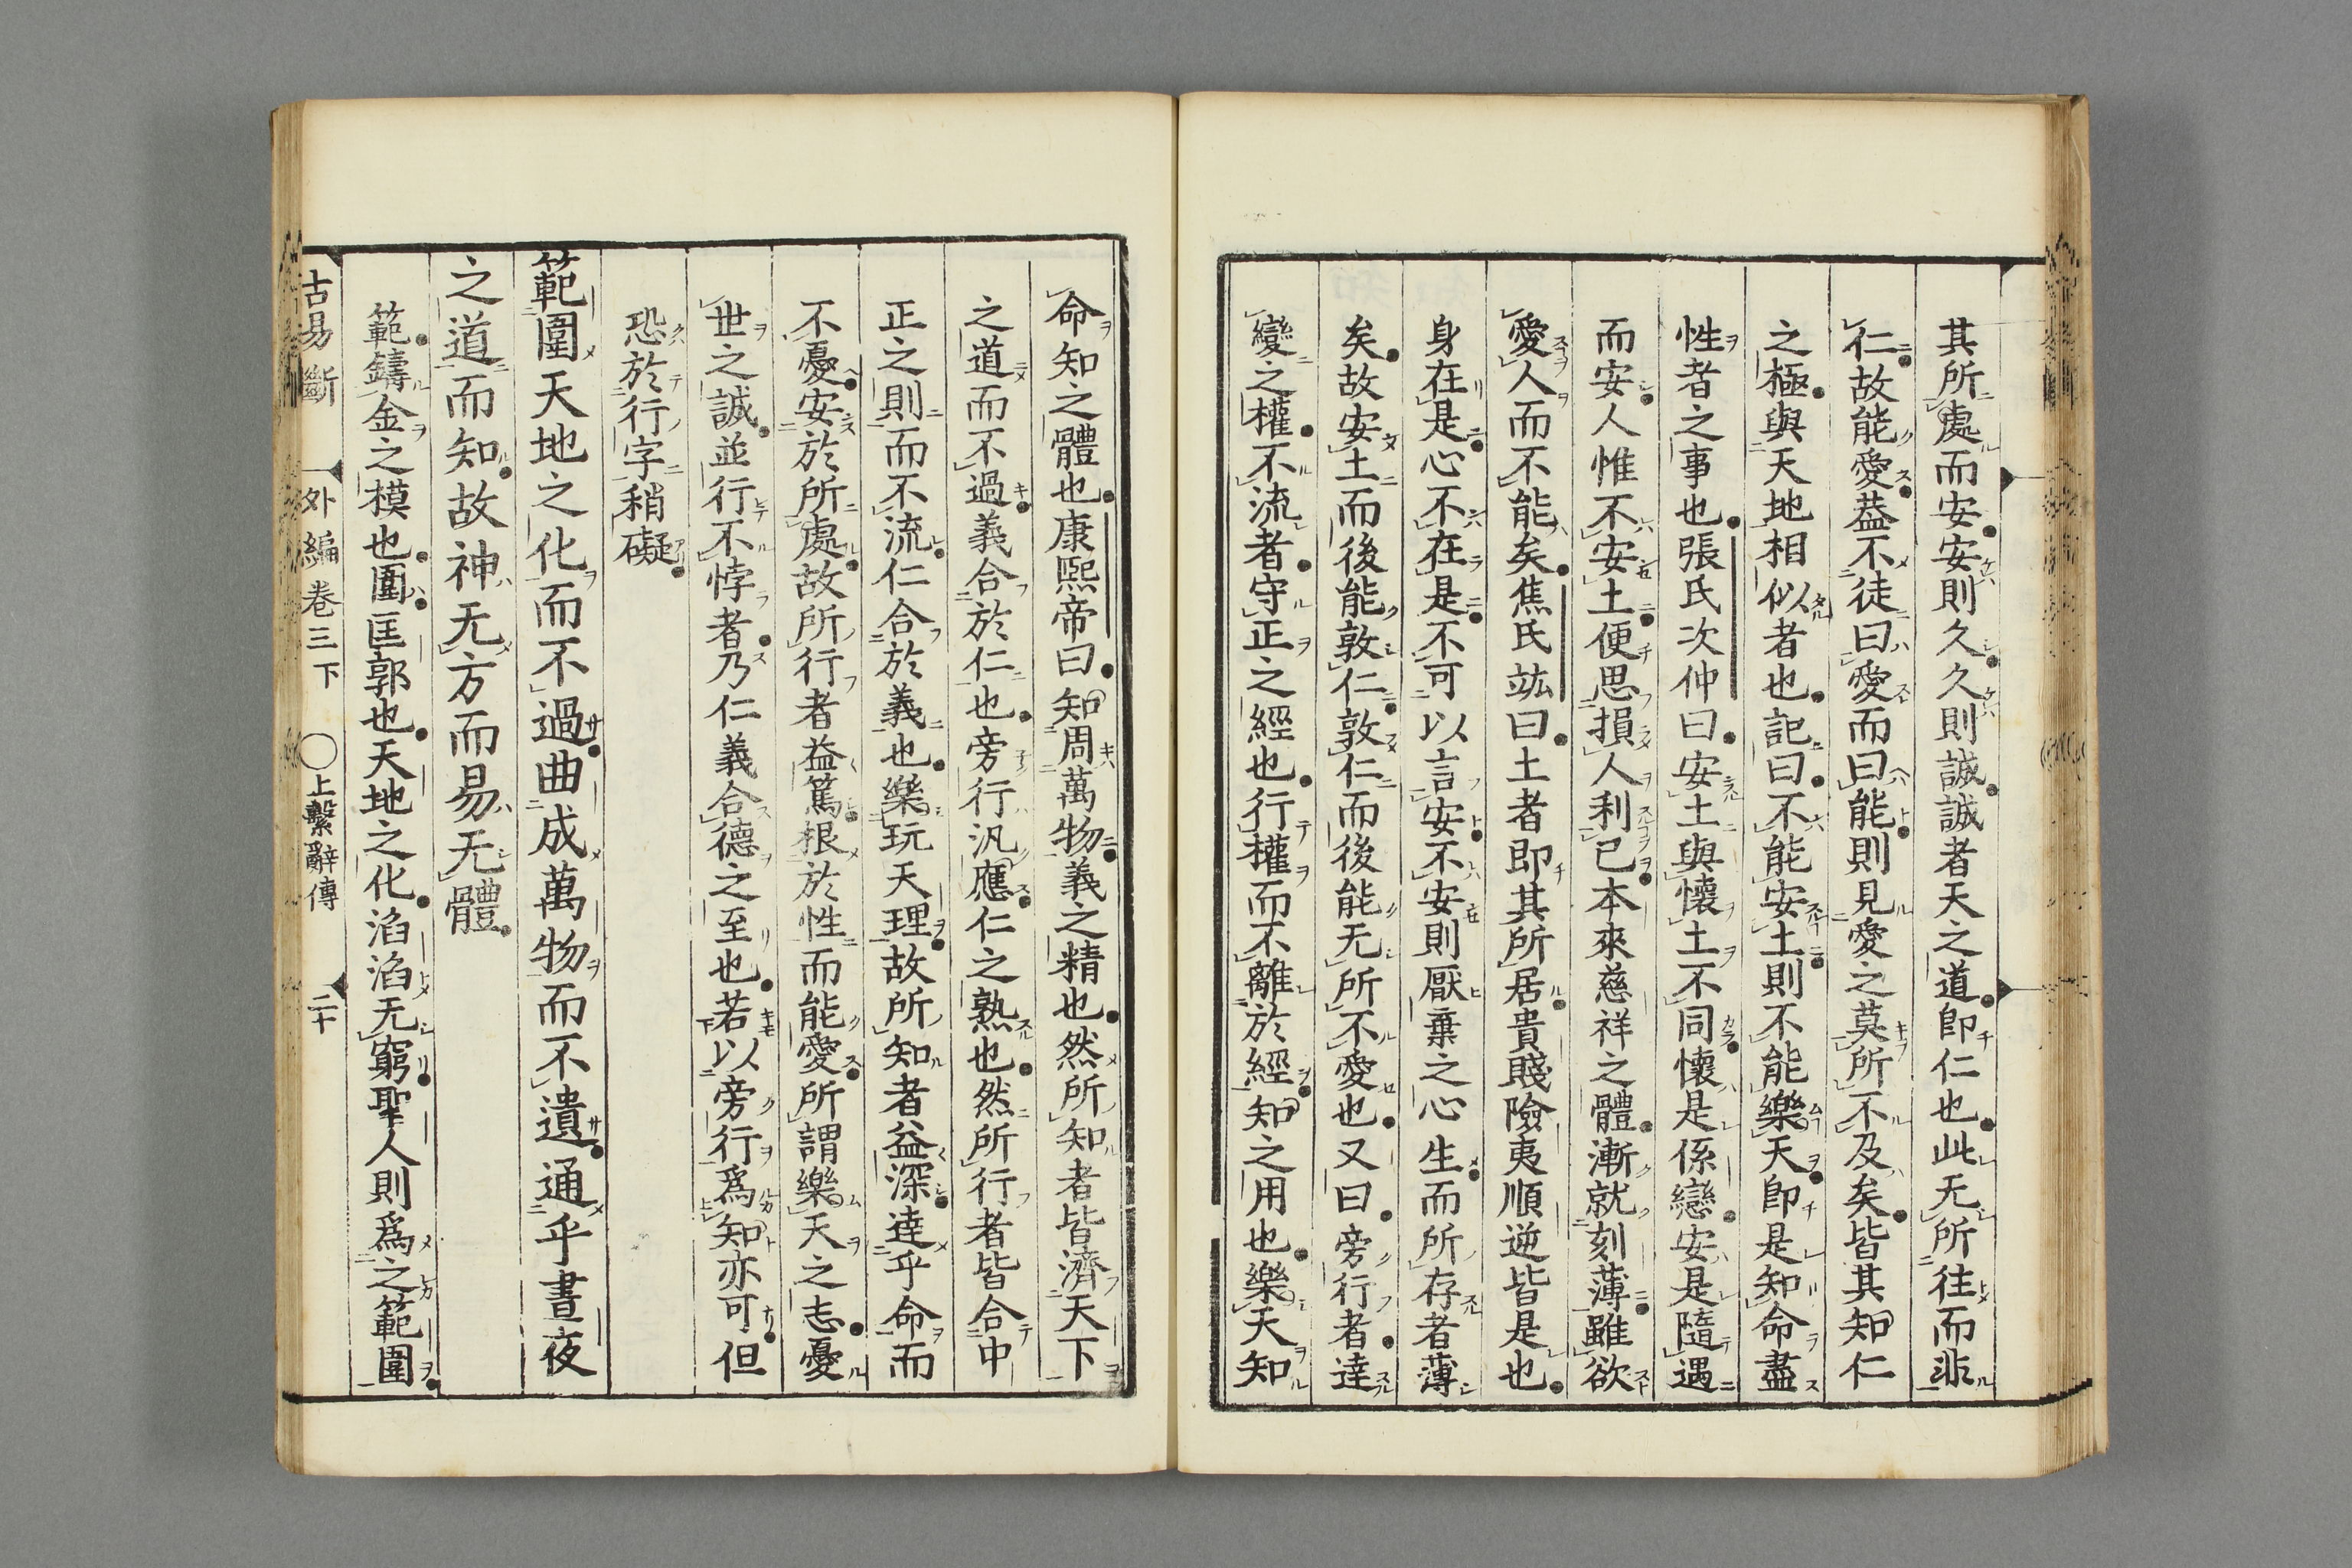 其所處而安安則久久則誠誠者天之道卽仁也此无所往而非
仁故能愛葢不徒曰愛而曰能則見愛之莫所不及矣皆其知仁
之極與天地相似者也記曰不能安土則不能樂天卽是知命盡
性者之事也張氏次仲曰安土與懷土不同懷是係戀安是隨遇
而安人惟不安土便思損人利己本來慈祥之體漸就刻薄雖欲
愛人而不能矣焦氏竑曰土者即其所居貴賤險夷順逆皆是也
身在是心不在是不可以言安不安則厭棄之心生而所存者薄
矣故安土而後能敦仁敦仁而後能无所不愛也又曰旁行者達
變之權不流者守正之經也行權而不離於經知之用也樂天知
命知之體也康熙帝曰知周萬物義之精也然所知者皆濟天下
之道而不過義合於仁也旁行汎應仁之熟也然所行者皆合中
正之則而不流仁合於義也樂玩天理故所知者益深達乎命而
不憂安於所處故所行者益篤根於性而能愛所謂樂天之志憂
世之誠並行不悖者乃仁義合德之至也若以旁行爲知亦可但
恐於行字稍礙
範圍天地之化而不過曲成萬物而不遺通乎晝夜
之道而知故神无方而易无體
範鑄金之模也圍匡郭也天地之化滔滔无窮聖人則爲之範圍
古易斷 外編卷三下 ○上繫辭傳 二十